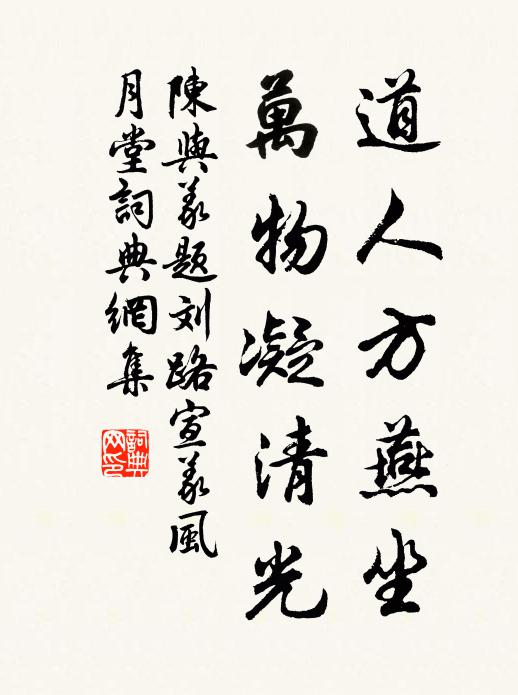 道人方燕坐
萬物凝清光
陳與義題刘路宣義風
月堂詞典網集
詞典
网印